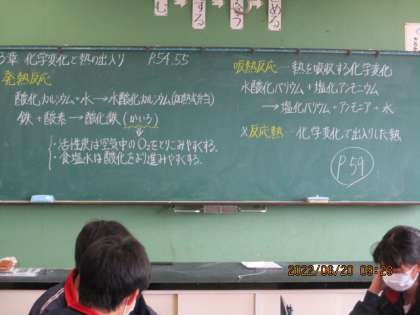 む
する
う
める
3章 化学変化と熱の出入り P54.55
発熱反応
酸化カルシウム+水→水酸化カルシウム(加熱式弁当)
鉄+酸素→酸化鉄(かいろ)
・活性炭は空気中のO₂をとりこみやすくする。
・食塩水は酸化をより進みやすくする。
吸熱反応―熱を吸収する化学変化
水酸化バリウム+塩化アンモニウム
→塩化バリウム+アンモニア+水
※反応熱―化学変化で出入りした熱
P59
2022/06/20 09:23